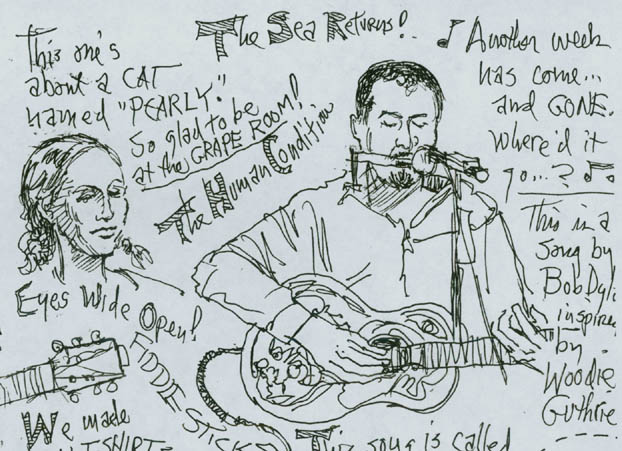 This one's
about a CAT
named "PEARLY."
So glad to be
at the GRAPE ROOM!
The Sea Returns!
The Human Condition
Another week
has come...
and GONE.
Where'd it
go...?
This is a
song by
Bob Dyl
inspire
by
Woodie
Guthrie
Eyes Wide Open!
EDDIE STICKS
We made
T SHIRT
This song is called